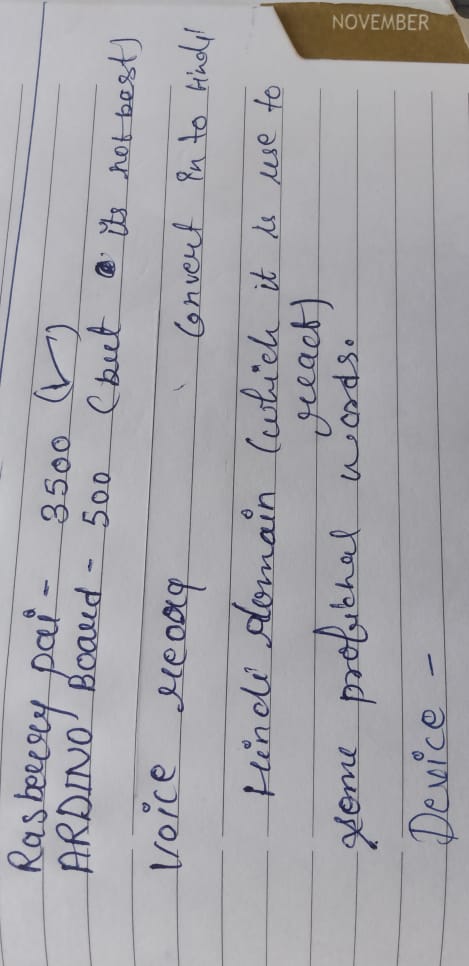 NOVEMBER
Rasberry pai - 3500 (✓)
ARDINO Board - 500 (but its not best)
Voice recog Convert in to Hindi
Hindi domain (which it is use to
react)
some profitional words.
Device -